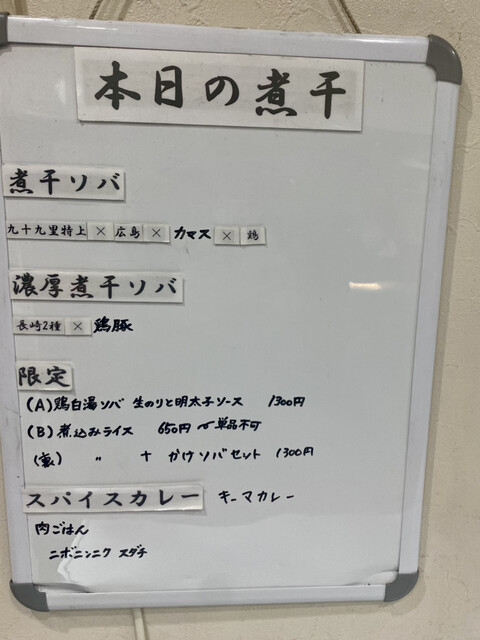 本日の煮干
煮干ソバ
九十九里特上 × 広島 × カマス × 鶏
濃厚煮干ソバ
長崎2種 × 鶏豚
限定
(A) 鶏白湯ソバ 生のりと明太子ソース 1300円
(B) 煮込みライス 650円 単品不可
(裏) 〃 + かけソバセット 1300円
スパイスカレー キーマカレー
肉ごはん
ニボニンニク スダチ